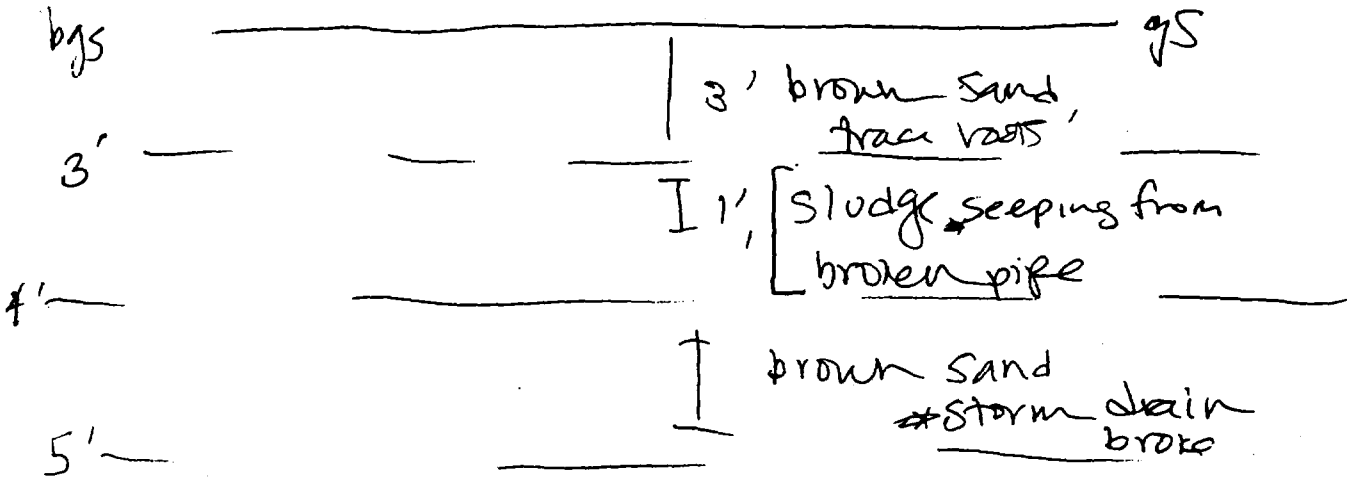 bgs gs
3' brown sand,
trace roots
3'
1', [sludge seeping from
broken pipe
4'
brown sand
*storm drain
broke
5'